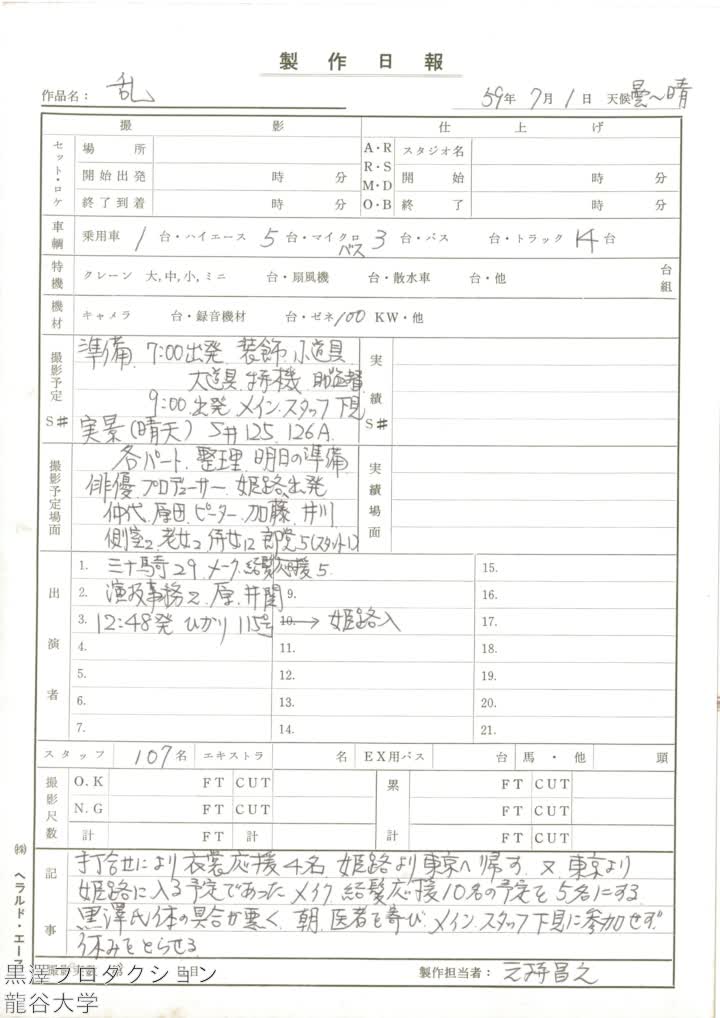 製作日報
作品名： 乱 59年 7月 1日 天候 曇〜晴
撮影 仕上げ
セット・ロケ 場所 A・R スタジオ名
開始出発 時 分 R・S 開始 時 分
M・D
終了到着 時 分 O・B 終了 時 分
車輌 乗用車 1 台・ハイエース 5 台・マイクロバス 3 台・バス 台・トラック 14 台
特機 クレーン 大,中,小,ミニ 台・扇風機 台・散水車 台・他 台組
機材 キャメラ 台・録音機材 台・ゼネ100 KW・他
撮影予定 S# 準備 7:00出発 装飾 小道具 実績 S#
大道具 特機 助監督
9:00出発 メインスタッフ下見
実景(晴天) S#125 126A
撮影予定場面 各パート 整理 明日の準備 実績場面
俳優 プロデューサー 姫路出発
仲代 原田 ピーター 加藤 井川
側室2 老女2 侍女12 郎党5(スタント1)
出演者 1. 三十騎29 メーク 結髪応援5 15.
2. 演技事務2 原 井関 9. 16.
3. 12:48発 ひかり115号 10. → 姫路入 17.
4. 11. 18.
5. 12. 19.
6. 13. 20.
7. 14. 21.
スタッフ 107名 エキストラ 名 EX用バス 台 馬・他 頭
撮影尺数 O.K FT CUT 累計 FT CUT
N.G FT CUT FT CUT
計 FT 計 FT CUT
記事 打合せにより衣裳応援4名 姫路より東京へ帰す 又 東京より
姫路に入る予定であったメイク 結髪応援10名の予定を5名にする
黒澤氏体の具合が悪く 朝 医者を呼び メインスタッフ下見に参加せず
休みをとらせる
撮影実数 第 日目 製作担当者：
㈱ ヘラルド・エース
黒澤プロダクション
龍谷大学